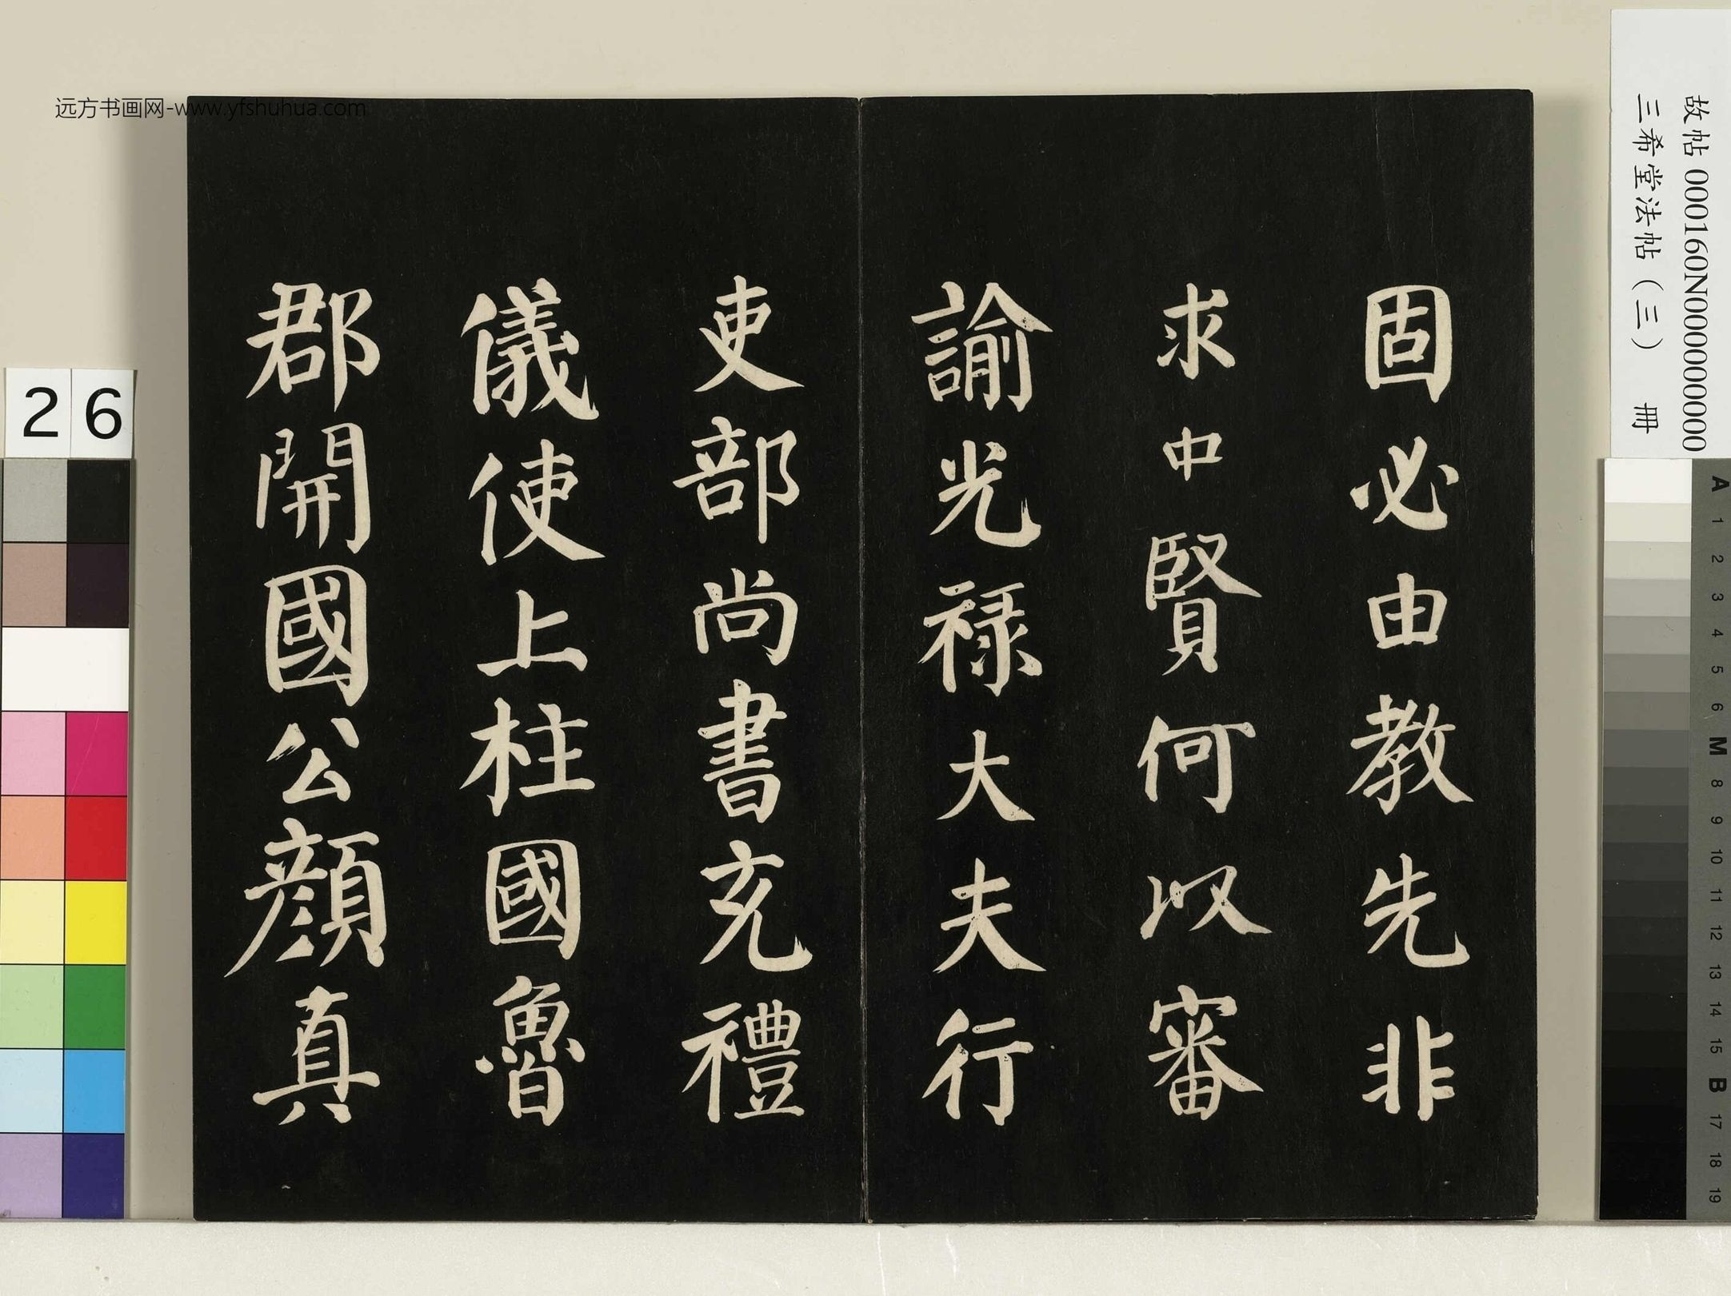 固必由教先非
求中賢何以審
諭光禄大夫行
吏部尚書充禮
儀使上柱國魯
郡開國公顔真
远方书画网-www.yfshuhua.com
故帖 000160N000000000
三希堂法帖（三） 冊
26
A
1
2
3
4
5
6
M
8
9
10
11
12
13
14
15
B
17
18
19